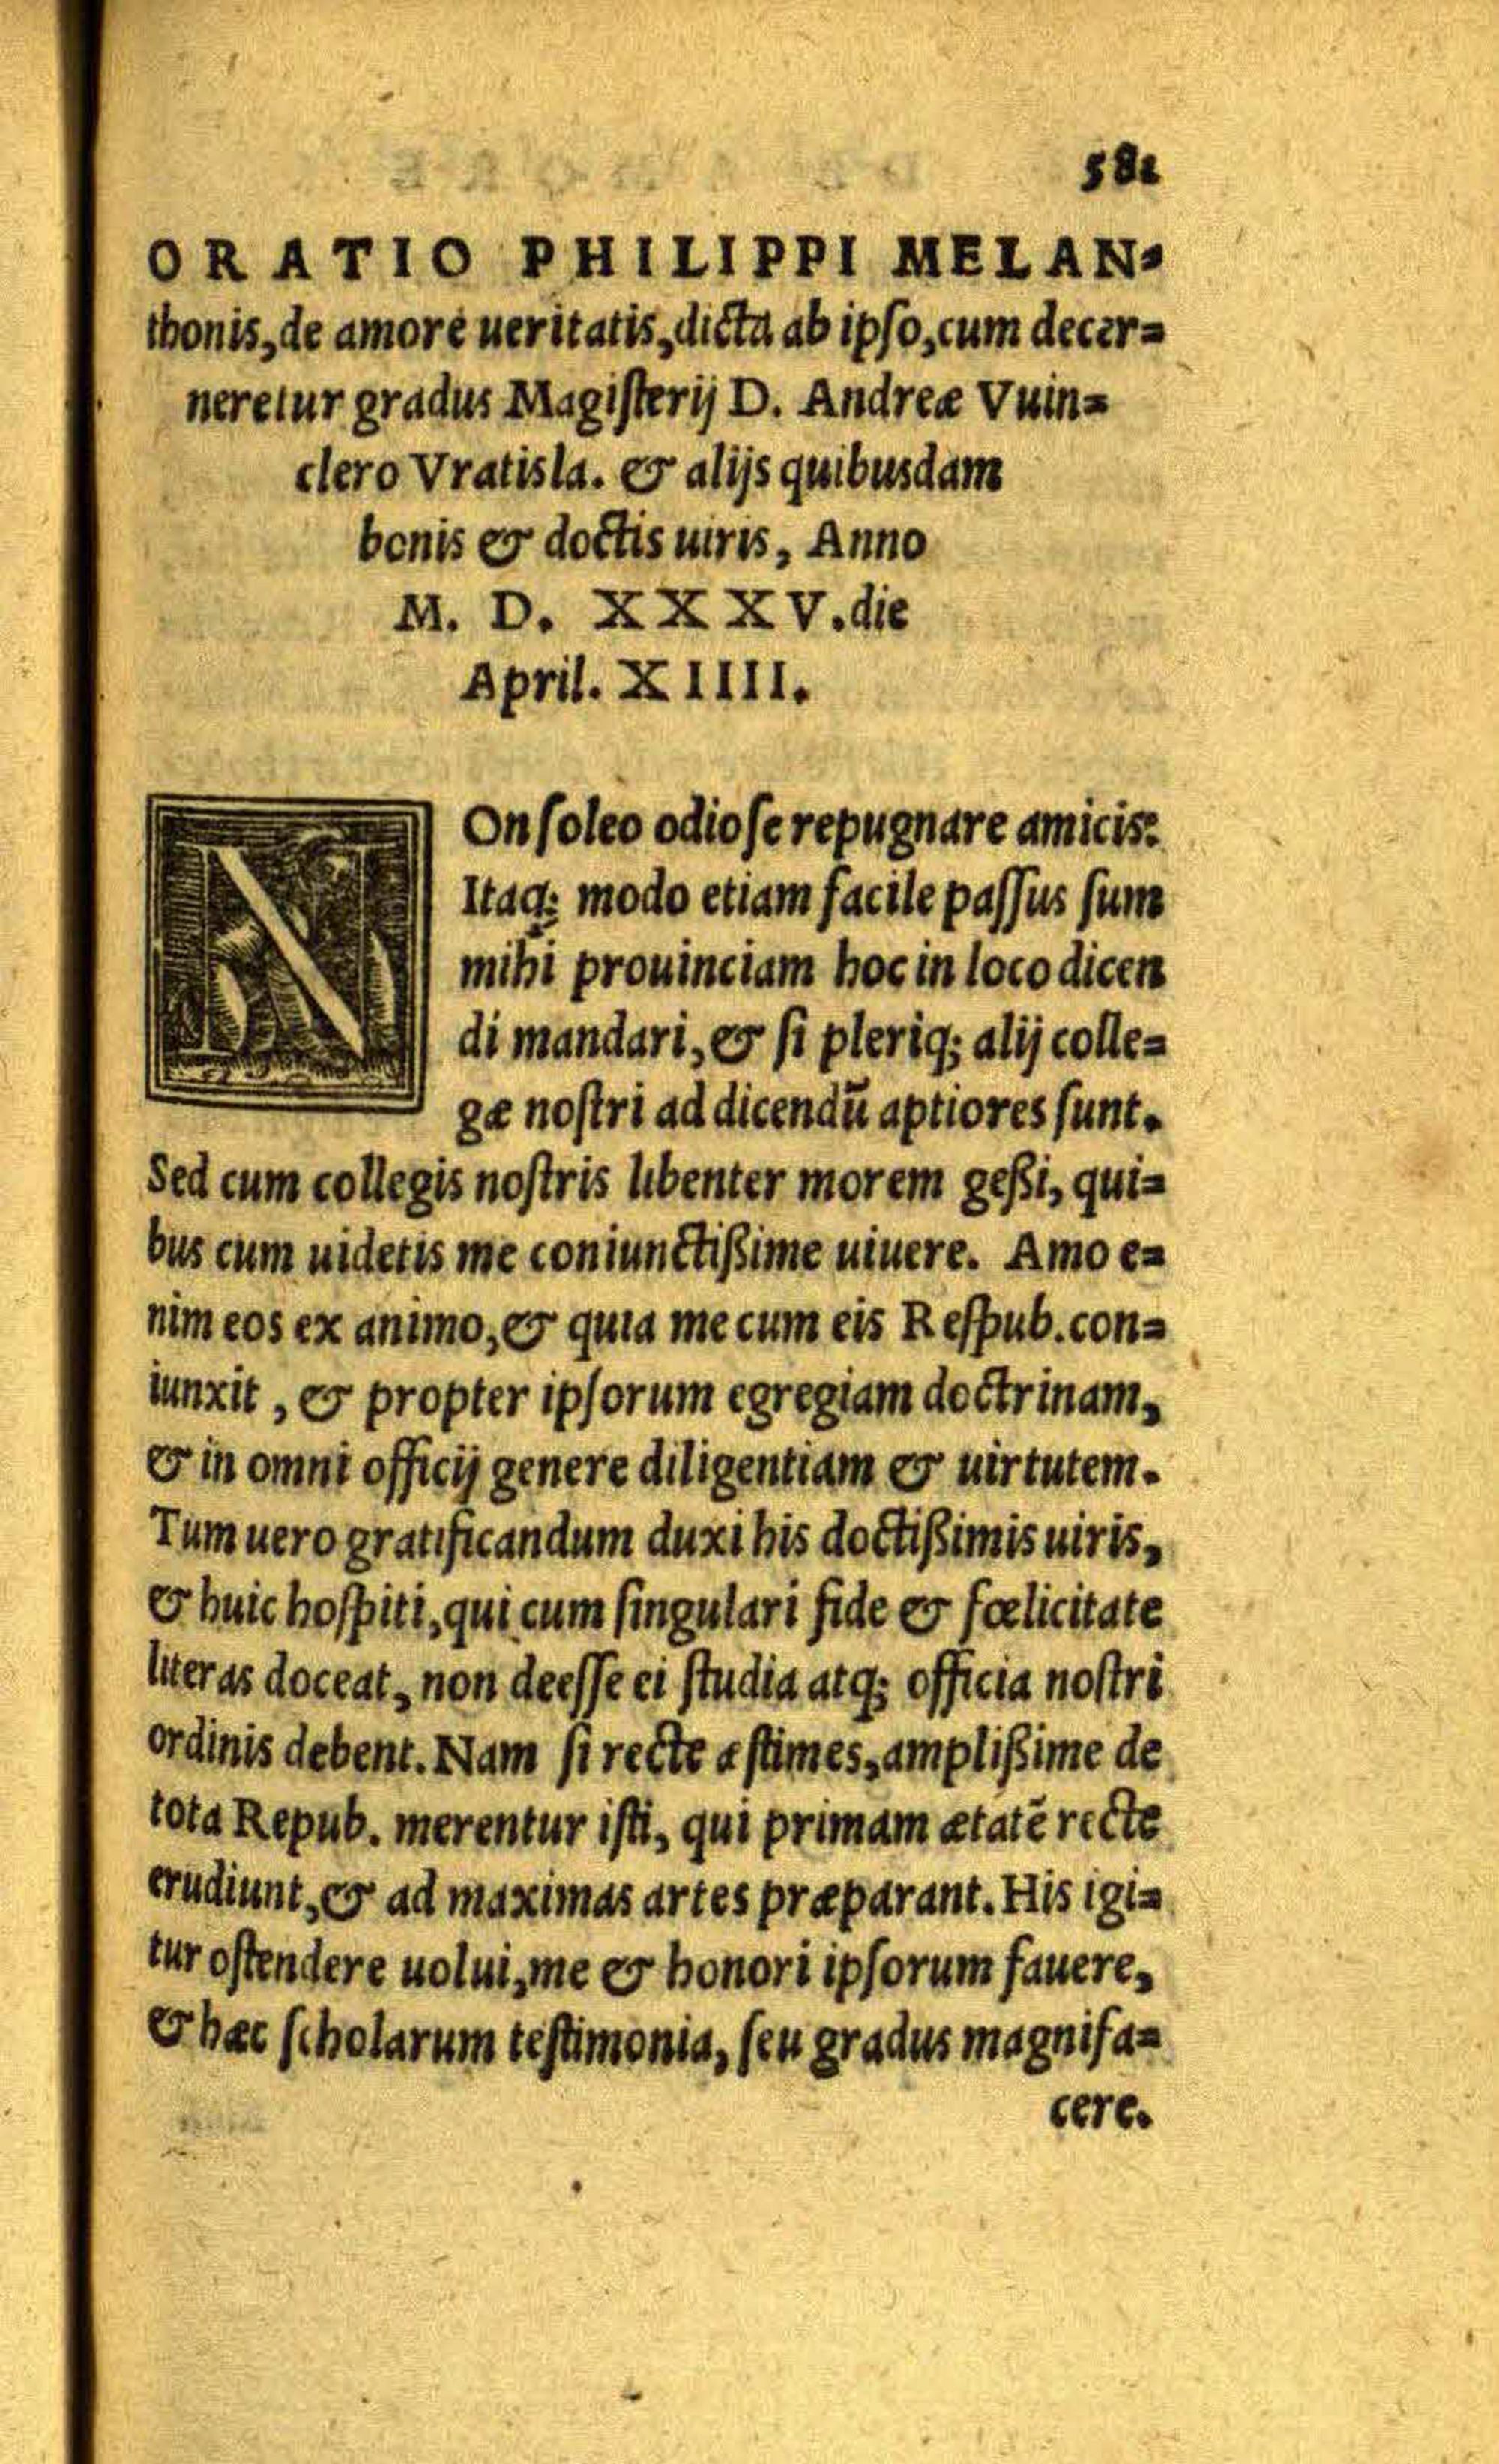 581
ORATIO PHILIPPI MELAN-
thonis, de amore ueritatis, dicta ab ipſo, cum decer-
neretur gradus Magiſterij D. Andreæ Vuin-
clero Vratisla. & alijs quibusdam
bonis & doctis uiris, Anno
M. D. XXXV. die
April. XIIII.
NOn ſoleo odioſe repugnare amicis:
Itaq; modo etiam facile paſſus ſum
mihi prouinciam hoc in loco dicen
di mandari, & ſi pleriq; alij colle-
gæ noſtri ad dicendū aptiores ſunt.
Sed cum collegis noſtris libenter morem geßi, qui-
bus cum uidetis me coniunctißime uiuere. Amo e-
nim eos ex animo, & quia me cum eis Reſpub. con-
iunxit, & propter ipſorum egregiam doctrinam,
& in omni officij genere diligentiam & uirtutem.
Tum uero gratificandum duxi his doctißimis uiris,
& huic hoſpiti, qui cum ſingulari fide & fœlicitate
literas doceat, non deeſſe ei ſtudia atq; officia noſtri
ordinis debent. Nam ſi recte æſtimes, amplißime de
tota Repub. merentur iſti, qui primam ætatē recte
erudiunt, & ad maximas artes præparant. His igi-
tur oſtendere uolui, me & honori ipſorum fauere,
& hæc ſcholarum teſtimonia, ſeu gradus magnifa-
cere.